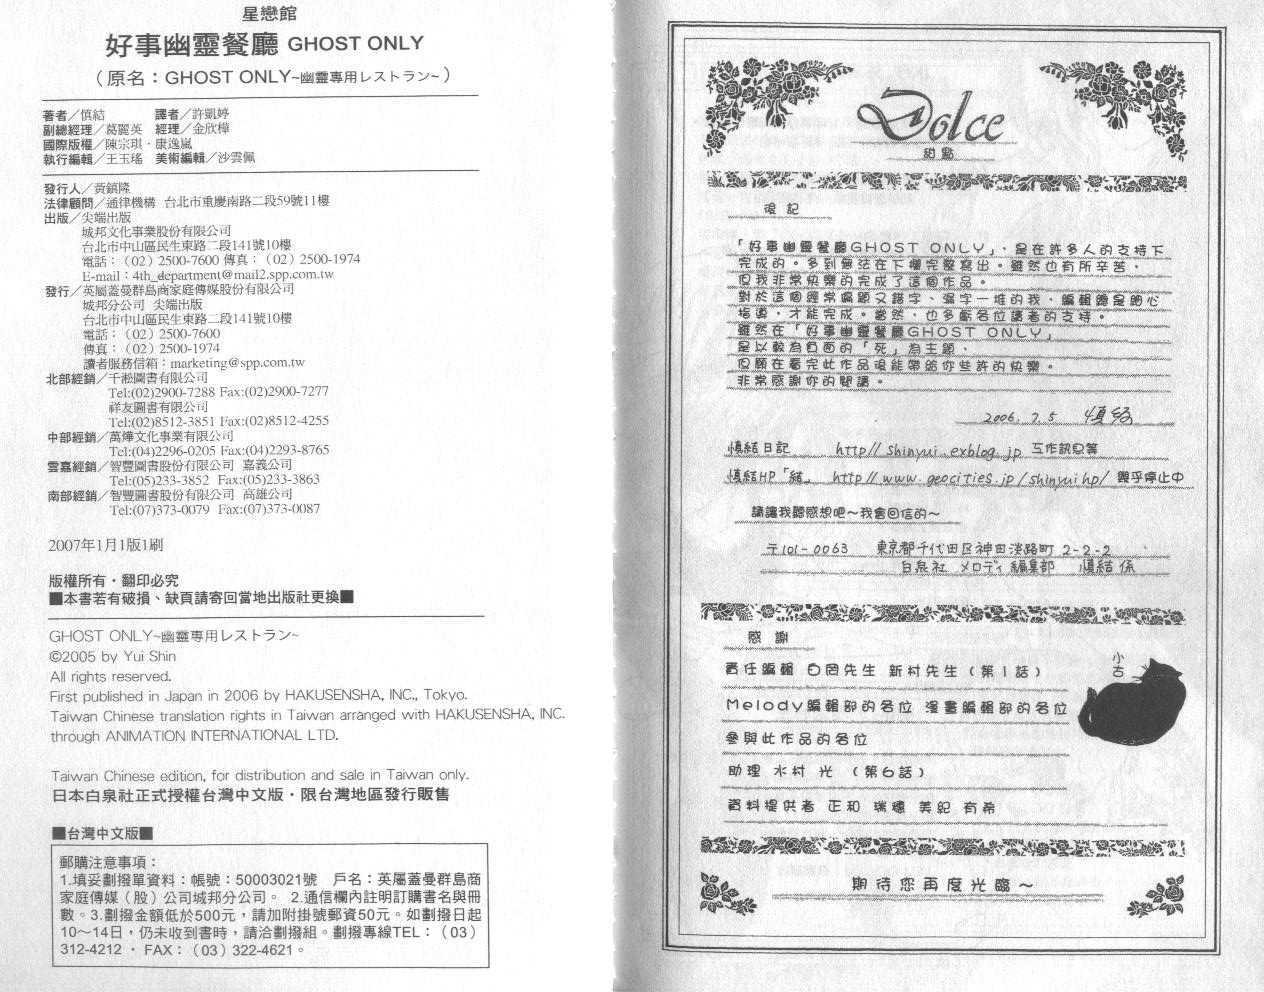 星戀館
好事幽靈餐廳 GHOST ONLY
（原名：GHOST ONLY~幽靈專用レストラン~）
著者／慎結　譯者／許凱婷
副總經理／葛麗英　經理／金欣樺
國際版權／陳宗琪．康逸嵐
執行編輯／王玉瑤　美術編輯／沙雲佩
發行人／黃鎮隆
法律顧問／通律機構　台北市重慶南路二段59號11樓
出版／尖端出版
城邦文化事業股份有限公司
台北市中山區民生東路二段141號10樓
電話：（02）2500-7600 傳真：（02）2500-1974
E-mail：4th_department@mail2.spp.com.tw
發行／英屬蓋曼群島商家庭傳媒股份有限公司
城邦分公司　尖端出版
台北市中山區民生東路二段141號10樓
電話：（02）2500-7600
傳真：（02）2500-1974
讀者服務信箱：marketing@spp.com.tw
北部經銷／千淞圖書有限公司
Tel:(02)2900-7288 Fax:(02)2900-7277
祥友圖書有限公司
Tel:(02)8512-3851 Fax:(02)8512-4255
中部經銷／萬燁文化事業有限公司
Tel:(04)2296-0205 Fax:(04)2293-8765
雲嘉經銷／智豐圖書股份有限公司　嘉義公司
Tel:(05)233-3852 Fax:(05)233-3863
南部經銷／智豐圖書股份有限公司　高雄公司
Tel:(07)373-0079 Fax:(07)373-0087
2007年1月1版1刷
版權所有．翻印必究
■本書若有破損、缺頁請寄回當地出版社更換■
GHOST ONLY~幽靈専用レストラン~
©2005 by Yui Shin
All rights reserved.
First published in Japan in 2006 by HAKUSENSHA, INC., Tokyo.
Taiwan Chinese translation rights in Taiwan arranged with HAKUSENSHA, INC.
through ANIMATION INTERNATIONAL LTD.
Taiwan Chinese edition, for distribution and sale in Taiwan only.
日本白泉社正式授權台灣中文版．限台灣地區發行販售
■台灣中文版■
郵購注意事項：
1.填妥劃撥單資料：帳號：50003021號　戶名：英屬蓋曼群島商
家庭傳媒（股）公司城邦分公司。 2.通信欄內註明訂購書名與冊
數。3.劃撥金額低於500元，請加附掛號郵資50元。如劃撥日起
10～14日，仍未收到書時，請洽劃撥組。劃撥專線TEL：（03）
312-4212 ．FAX：（03）322-4621。
Dolce
甜點
後記
「好事幽靈餐廳GHOST ONLY」，是在許多人的支持下
完成的。多到無法在下欄完整寫出。雖然也有所辛苦，
但我非常快樂的完成了這個作品。
對於這個經常偏題又錯字、漏字一堆的我，編輯總是細心
指導，才能完成。當然，也多虧各位讀者的支持。
雖然在「好事幽靈餐廳GHOST ONLY」
是以較為負面的「死」為主題，
但願在看完此作品後能帶給你些許的快樂。
非常感謝你的閱讀。
2006. 7. 5　慎結
慎結日記　http// shinyui.exblog.jp 工作訊息等
慎結HP「結」　http//www.geocities.jp/shinyuihp/ 幾乎停止中
請讓我聽感想吧～我會回信的～
〒101-0063　東京都千代田区神田淡路町 2-2-2
白泉社　メロディ編集部　慎結 係
感謝
責任編輯　白岡先生　新村先生（第1話）
Melody編輯部的各位　漫畫編輯部的各位
參與此作品的各位
助理　水村　光　（第6話）
資料提供者　正和　瑞穗　美紀　有希
小古
期待您再度光臨～